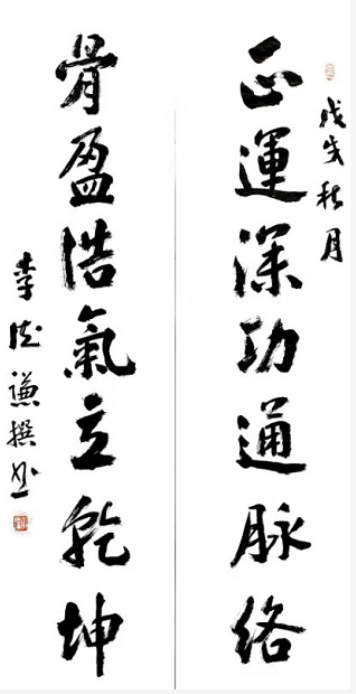 戊戌秋月
正運深功通脉络
骨盈浩氣立乾坤
李成謙撰书